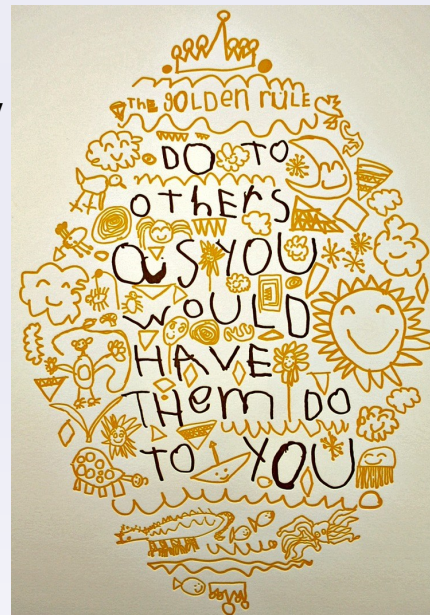 THE gOLDen rULE
DO TO
OthErS
aS YOU
wOULD
HAVE
THem DO
TO YOU